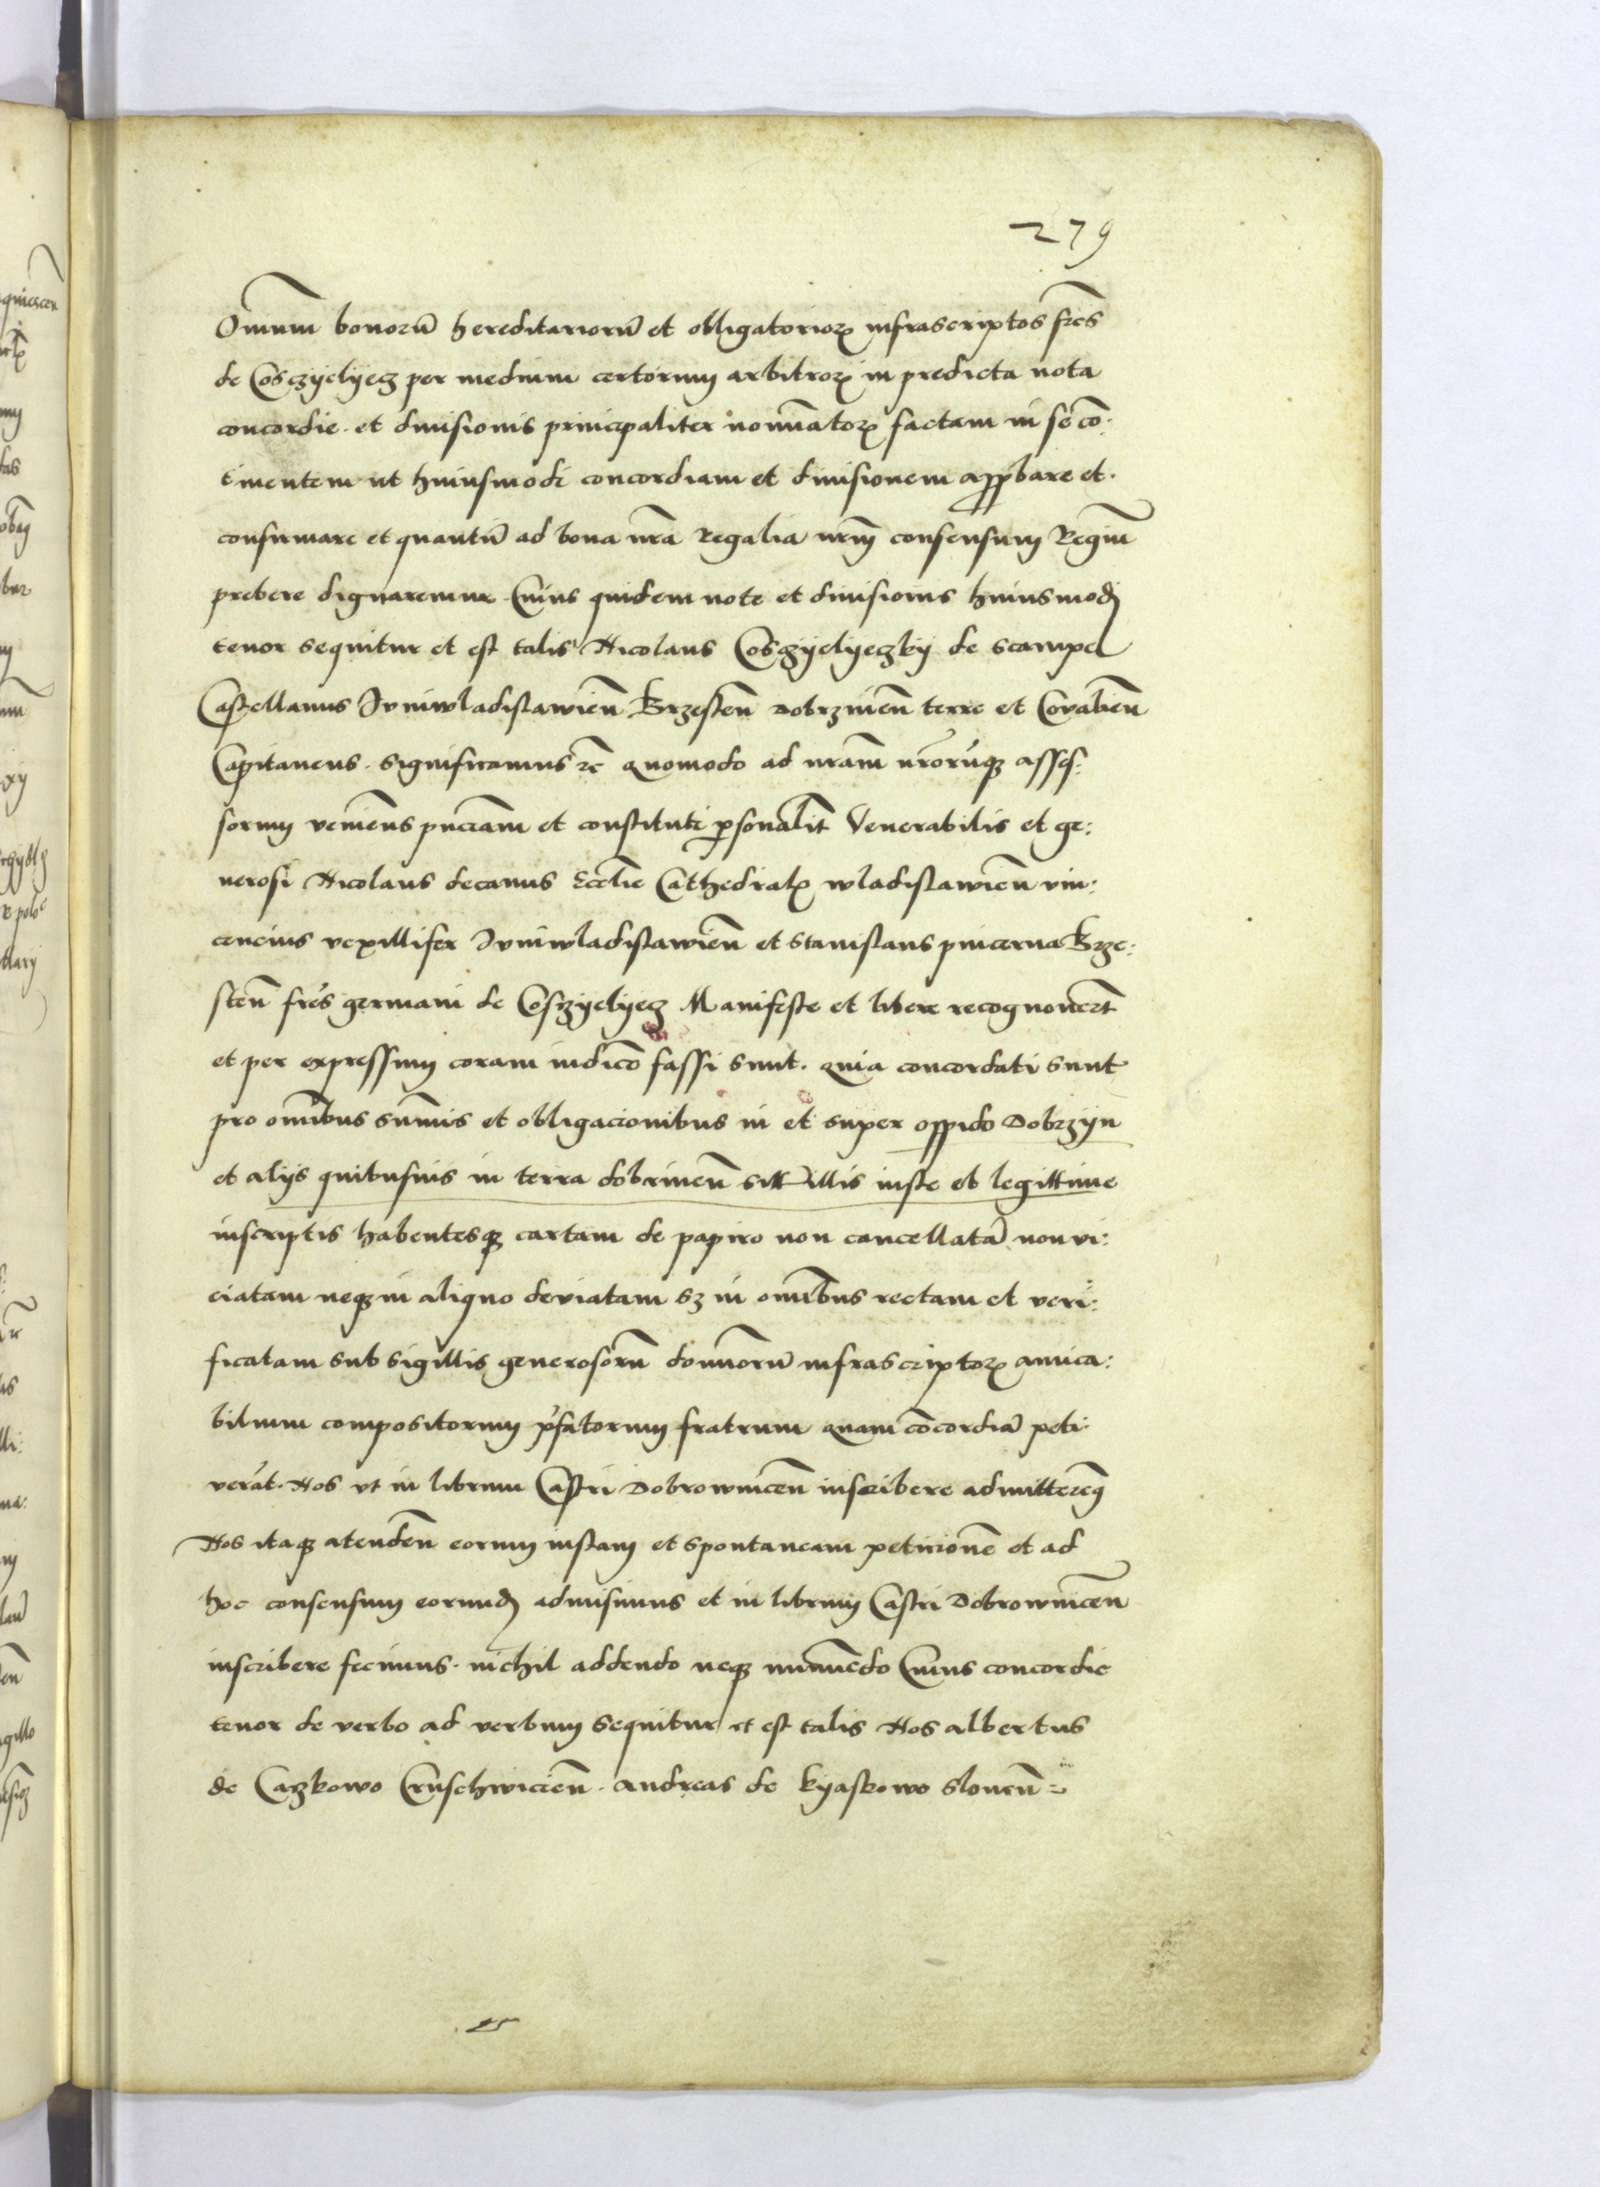 279
Om̄ium bonorū hereditariorū et obligatorioꝝ infrascriptos fr̄es
de Cosczyelyecz per medium certorum arbitroꝝ in predicta nota
concordie et diuisionis principaliter nomīatoꝝ factam in se cō:
tinentem ut huiusmodi concordiam et diuisionem appͦbare et
confirmare et quantū ad bona nr̄a Regalia nr̄m consensum Regiu̅
prebere dignaremur Cuius quidem note et diuisionis huiusmodj
tenor sequitur et est talis Nicolaus Cosczyelyeczky de Scampe
Castellanus Juniwladislawien̄ Brzesten̄ Dobrzinen̄ terre et Covalien̄
Capitaneus. significamus ꝛc̄ quomodo ad nr̄am nr̄orūqꝫ asses:
sorum veniens pn̄ciam et constituti ꝑsonalit̄ Venerabilis et ge:
nerosi Nicolaus decanus Ecclie Cathedralꝫ wladislawien̄ vin:
cencius vexillifer Juniwladislawien̄ et Stanislaus pincerna Brze:
sten̄ fr̄es germani de Cosczyelyecz Manifeste et libere recognouer̄t
et per expressum coram iudicō fassi sunt. quia concordati sunt
pro om̄ibus sūmis et obligacionibus in et super oppido Dobrzyn
et alijs quibusuis in terra dobrinen̄ sill illis iuste et legittime
inscriptis habentesqꝫ cartam de papiro non cancellatā non vi:
ciatam neqꝫ in aliquo deviatam sꝫ in om̄ibus rectam et veri:
ficatam sub sigillis generosorū dominorū infrascriptoꝝ amica:
bilium compositorum p̄fatorum fratrum quam cōcordiā peti:
verāt. Nos vt in librum Castri Dobrownicen̄ inscribere admitterem̄q
Nos itaqꝫ atenden̄ eorum iustam et spontaneam peticionē et ad
hoc consensum eorundꝫ admisimus et in librum Castri Dobrownicen̄
inscribere fecimus. nichil addendo neqꝫ minuēdo Cuius concordie
tenor de verbo ad verbum sequitur et est talis Nos albertus
de Caczkowo Cruschwicien̄. andreas de kyaskowo Slonen̄